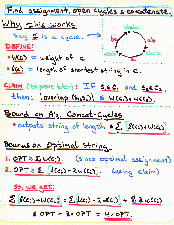 Find assignment, open cycles & concatenate
Why this works
Say S is a cycle.
DEFINE:
• W(c) = weight of c.
• l(c) = length of shortest string in c.
CLAIM (to prove later): If S₁∈C₁ and S₂∈C₂,
then: |overlap(S₁,S₂)| ≤ W(C₁)+W(C₂).
Bound on A's. Concat-Cycles
• outputs string of length ≤ Σ l(Cᵢ)+W(Cᵢ)
Bounds on Optimal String
1. OPT ≥ Σ W(Cᵢ) (since optimal assignment)
2. OPT ≥ Σ l(Cᵢ) - 2W(Cᵢ) (using claim)
So, we get:
Σ l(Cᵢ)+W(Cᵢ) = Σ l(Cᵢ)-2W(Cᵢ) + Σ 3W(Cᵢ)
≤ OPT + 3·OPT = 4·OPT.